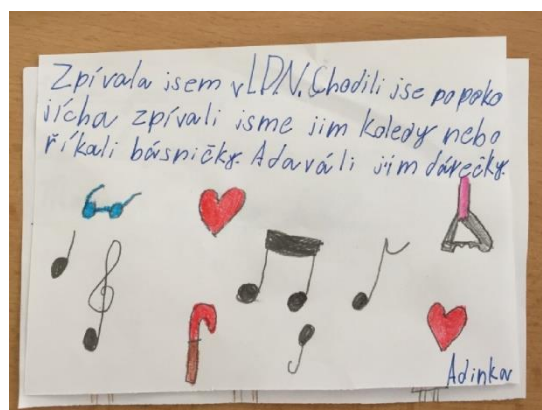 Zpívala jsem v LDN. Chodili jse po poko
jícha zpívali isme jim koledy nebo
říkali básničky. A daváli jim dárečky.
Adinka